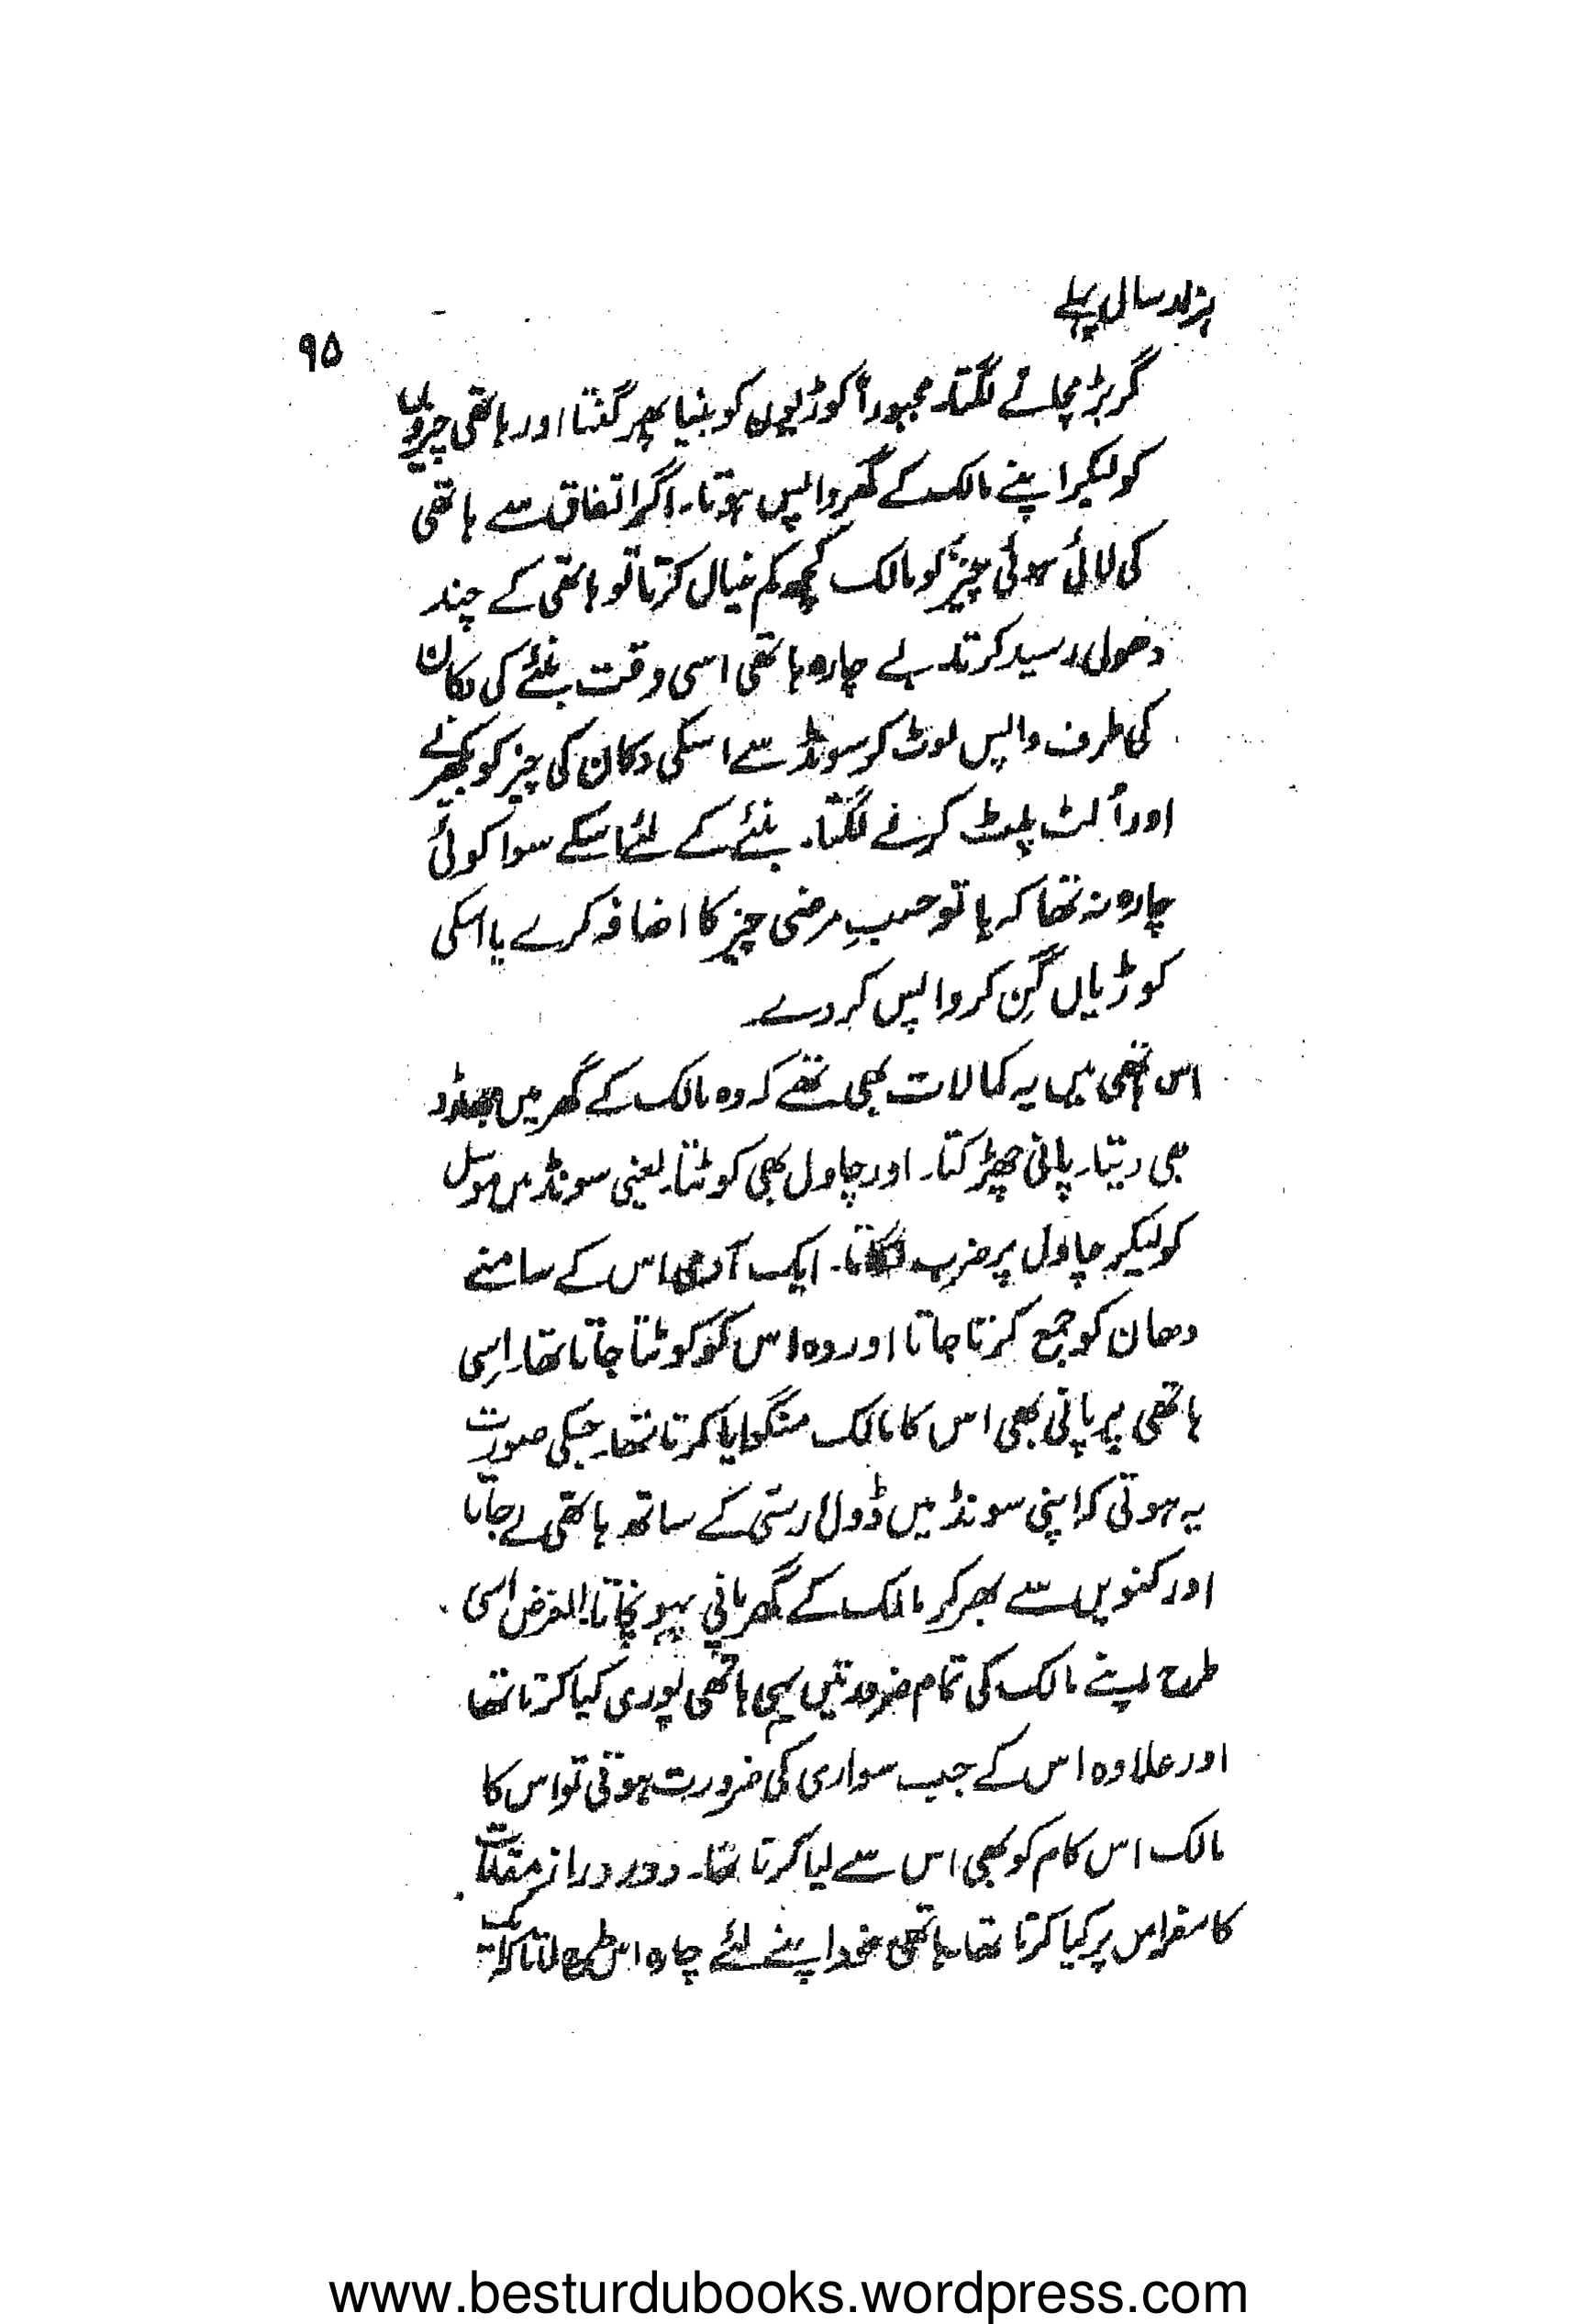 ہزار سال پہلے
۹۵
گربڑ مچانے لگتا۔ مجبوراً کوڑیوں کو بنیا پھر گنتا اور ہاتھی چیزوں
کو لیکر اپنے مالک کے گھر واپس ہوتا۔ اگر اتفاق سے ہاتھی
کی لائی ہوئی چیز کو مالک کچھ کم خیال کرتا تو ہاتھی کے چند
دھول رسید کرتا۔ بے چارہ ہاتھی اسی وقت بنئے کی دکان
کی طرف واپس لوٹ کر سونڈ سے اسکی دکان کی چیز کو بکھرنے
اور اُلٹ پلٹ کرنے لگتا۔ بنئے کے لئے اسکے سوا کوئی
چارہ نہ تھا کہ یا تو حسبِ مرضی چیز کا اضافہ کرے یا اسکی
کوڑیاں گِن کر واپس کر دے۔
اس ہاتھی میں یہ کمالات بھی تھے کہ وہ مالک کے گھر میں جھاڑو
بھی دیتا۔ پانی چھڑکتا۔ اور چاول بھی کوٹتا۔ یعنی سونڈ میں موسل
کو لیکر چاول پر ضرب لگاتا۔ ایک آدمی اس کے سامنے
دھان کو جمع کرتا جاتا اور وہ اس کو کوٹتا جاتا تھا۔ اِسی
ہاتھی پر پانی بھی اس کا مالک منگوایا کرتا تھا۔ جسکی صورت
یہ ہوتی کہ اپنی سونڈ میں ڈول رسّی کے ساتھ ہاتھی لے جاتا
اور کنویں سے بھر کر مالک کے گھر پانی پہونچاتا۔ الغرض اسی
طرح اپنے مالک کی تمام ضرورتیں یہی ہاتھی پوری کیا کرتا تھا
اور علاوہ اس کے جب سواری کی ضرورت ہوتی تو اس کا
مالک اس کام کو بھی اس سے لیا کرتا تھا۔ دور دراز مقامات
کا سفر اس پر کیا کرتا تھا۔ ہاتھی خود اپنے لئے چارہ اس طرح لاتا کہ ایک
www.besturdubooks.wordpress.com